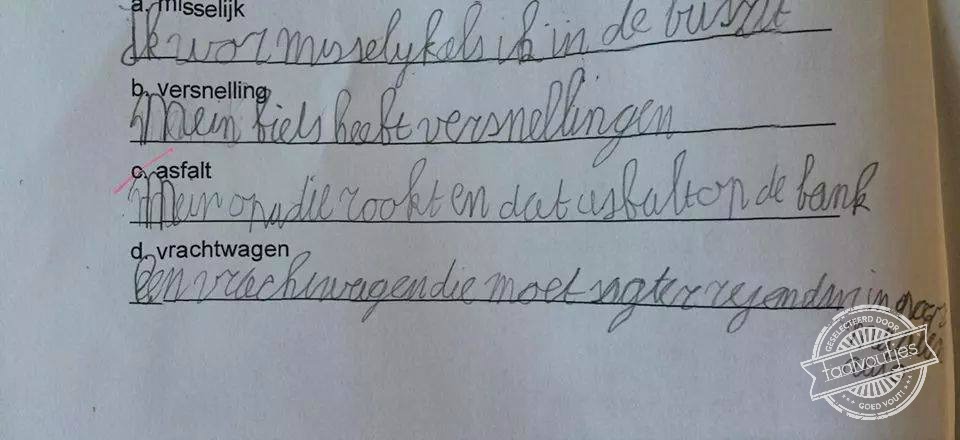 a. misselijk
Ik wor misselyk als ik in de bus zit
b. versnelling
Mein fiets heeft versnellingen
c. asfalt
Mein opa die rookt en dat asfalt op de bank
d. vrachtwagen
Een vrachtwagen die moet agter
GESELECTEERD DOOR
taalvoutjes
GOED VOUT!